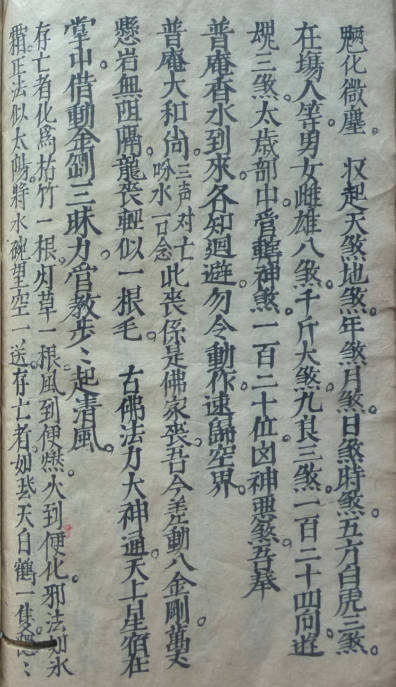 魑化微塵。　収起天煞地煞。年煞月煞。日煞時煞。五方白虎三煞。
在場人等男女雌雄八煞。千斤大煞。九良三煞。一百二十四向遊
煞三煞。太歳部中。管轄神煞。一百二十位凶神悪煞。吾奉
普庵香水到來。各知廻避。勿令動作。速歸空界。
普庵大和尚。三声对亡吩水一口念此喪係是佛家喪。吾今差動八金剛。萬丈
懸岩無阻隔。龍喪輕似一根毛。　古佛法力大神通。天上星宿在
掌中。借動金剛三昧力。官教步〻起清風。
存亡者化為枯竹一根。灯草一根。風到便燃。火到便化。邪法如氷
霜。正法似太陽。将水碗望空一送。存亡者。如天白鶴一隻